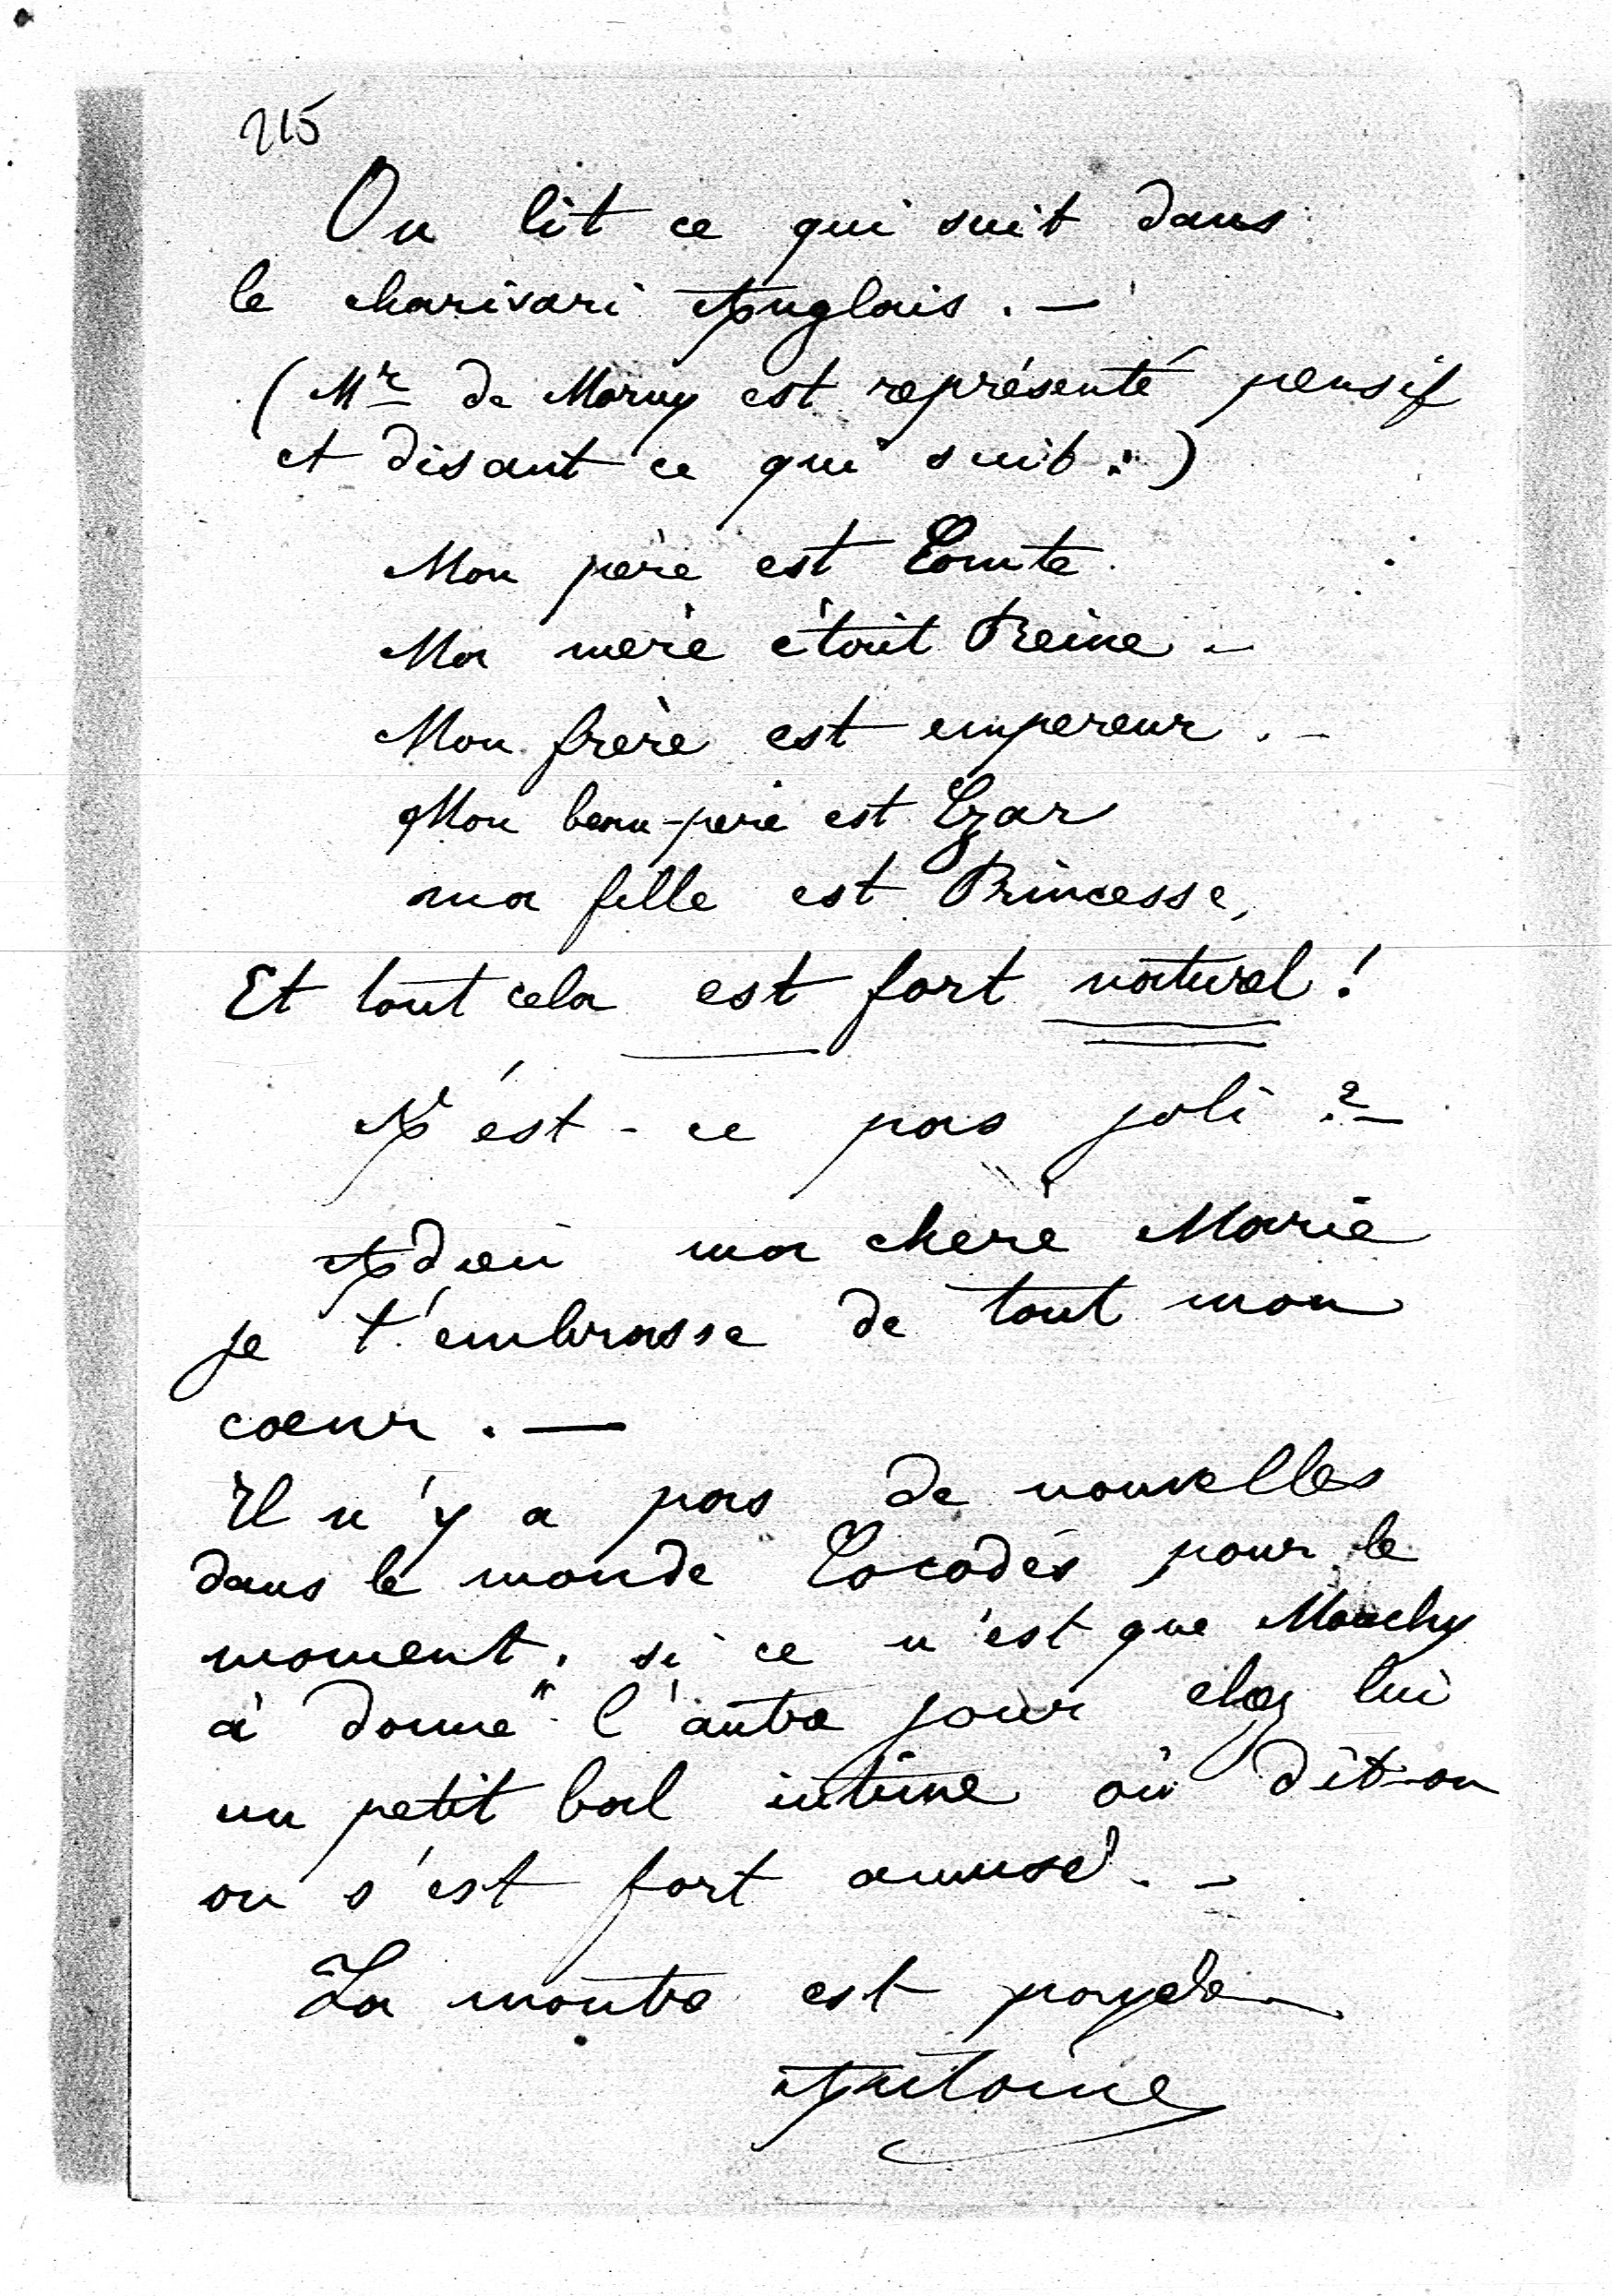 215
On lit ce qui suit dans
le charivari Anglais. —
(Mr de Morny est représenté pensif
et disant ce qui suit :)
Mon père est Comte.
Ma mère était Reine —
Mon frère est empereur. —
Mon beau-père est Czar
ma fille est Princesse,
Et tout cela est fort naturel !
N'est-ce pas joli ? —
Adieu ma chère Marie
je t'embrasse de tout mon
coeur. —
Il n'y a pas de nouvelles
dans le monde Cocodès pour le
moment. si ce n'est que Mouchy
à donné l'autre jour chez lui
un petit bal intime où dit-on
on s'est fort amusé. —
La montre est payée —
Antoine